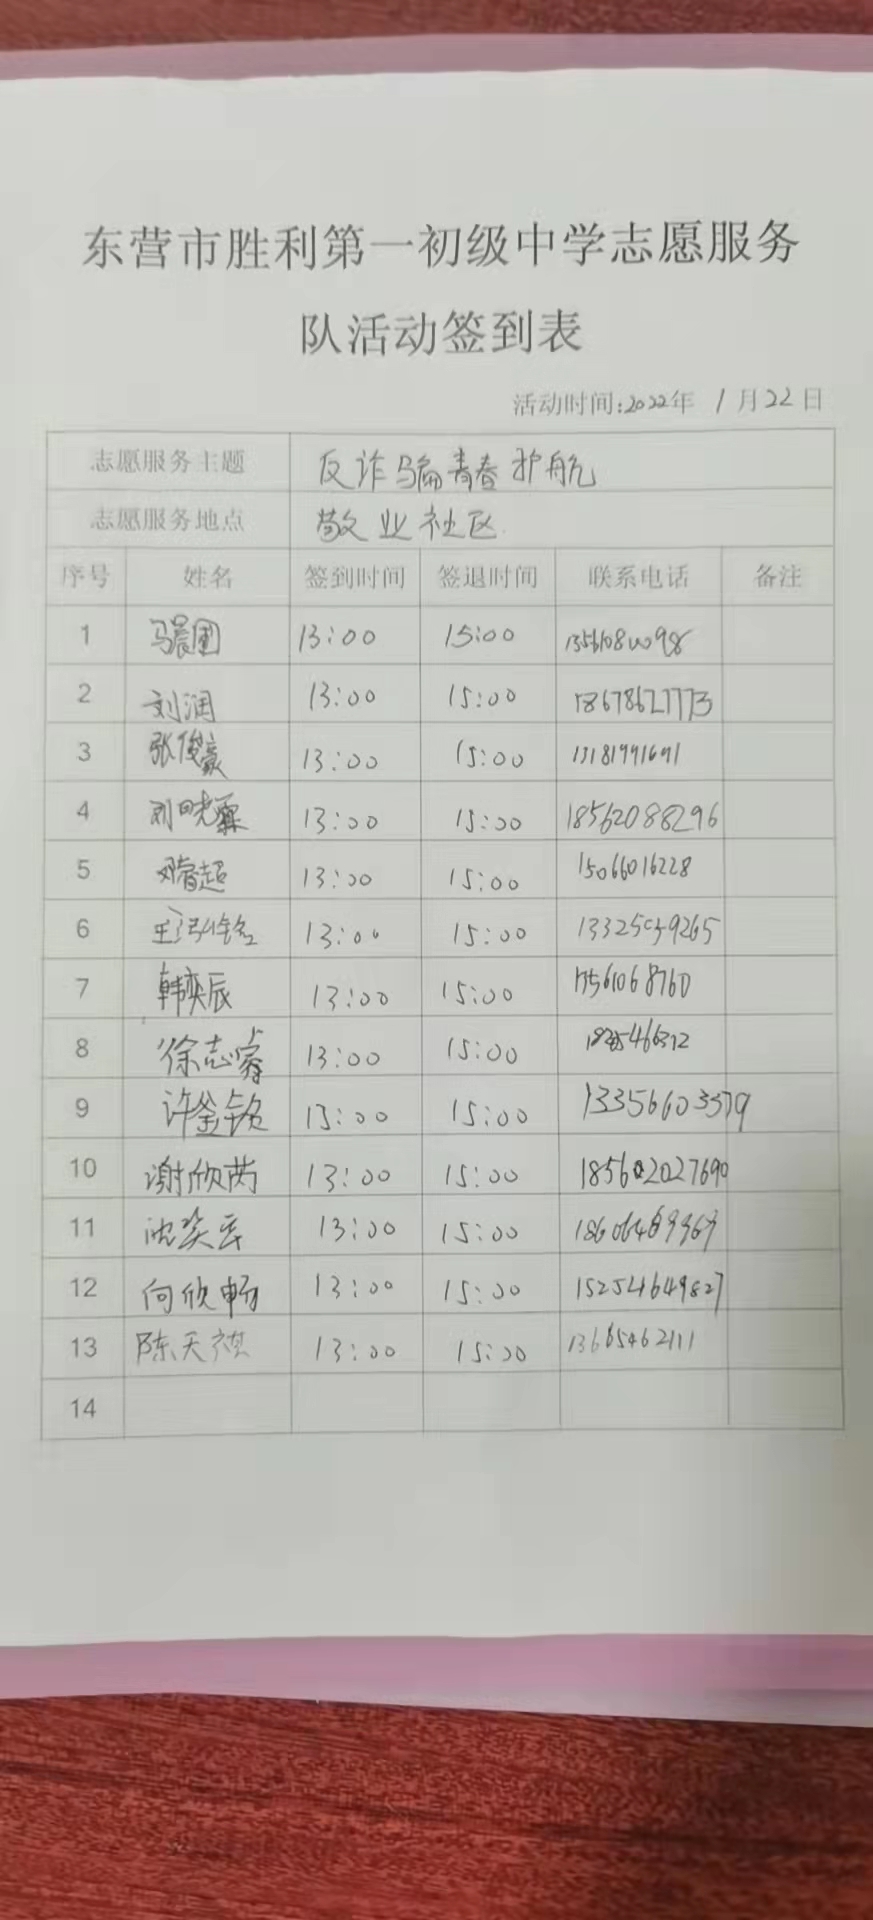 东营市胜利第一初级中学志愿服务
队活动签到表
活动时间:2022年 1月22日
志愿服务主题 反诈骗青春护航
志愿服务地点 敬业社区
序号 姓名 签到时间 签退时间 联系电话 备注
1 13:00 15:00
2 刘润 13:00 15:00 18678627773
3 张俊豪 13:00 15:00 13181991691
4 13:00 15:00 18562088296
5 邓睿超 13:00 15:00 15066016228
6 13:00 15:00
7 韩奕辰 13:00 15:00 17561068760
8 徐志睿 13:00 15:00
9 许鉴铭 13:00 15:00 13356603579
10 谢欣芮 13:00 15:00
11 沈奕云 13:00 15:00 18606469969
12 向欣畅 13:00 15:00 15254649827
13 陈天祺 13:00 15:00 13665462111
14